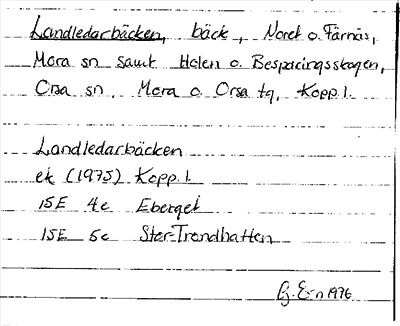 Landledarbäcken, bäck, Noret o. Färnäs,
Mora sn samt Holen o. Besparingsskogen,
Orsa sn, Mora o. Orsa tg, Kopp. l.
Landledarbäcken
ek (1975) Kopp. l.
15E 4e Eberget
15E 5e Stor-Trondhatten
1976